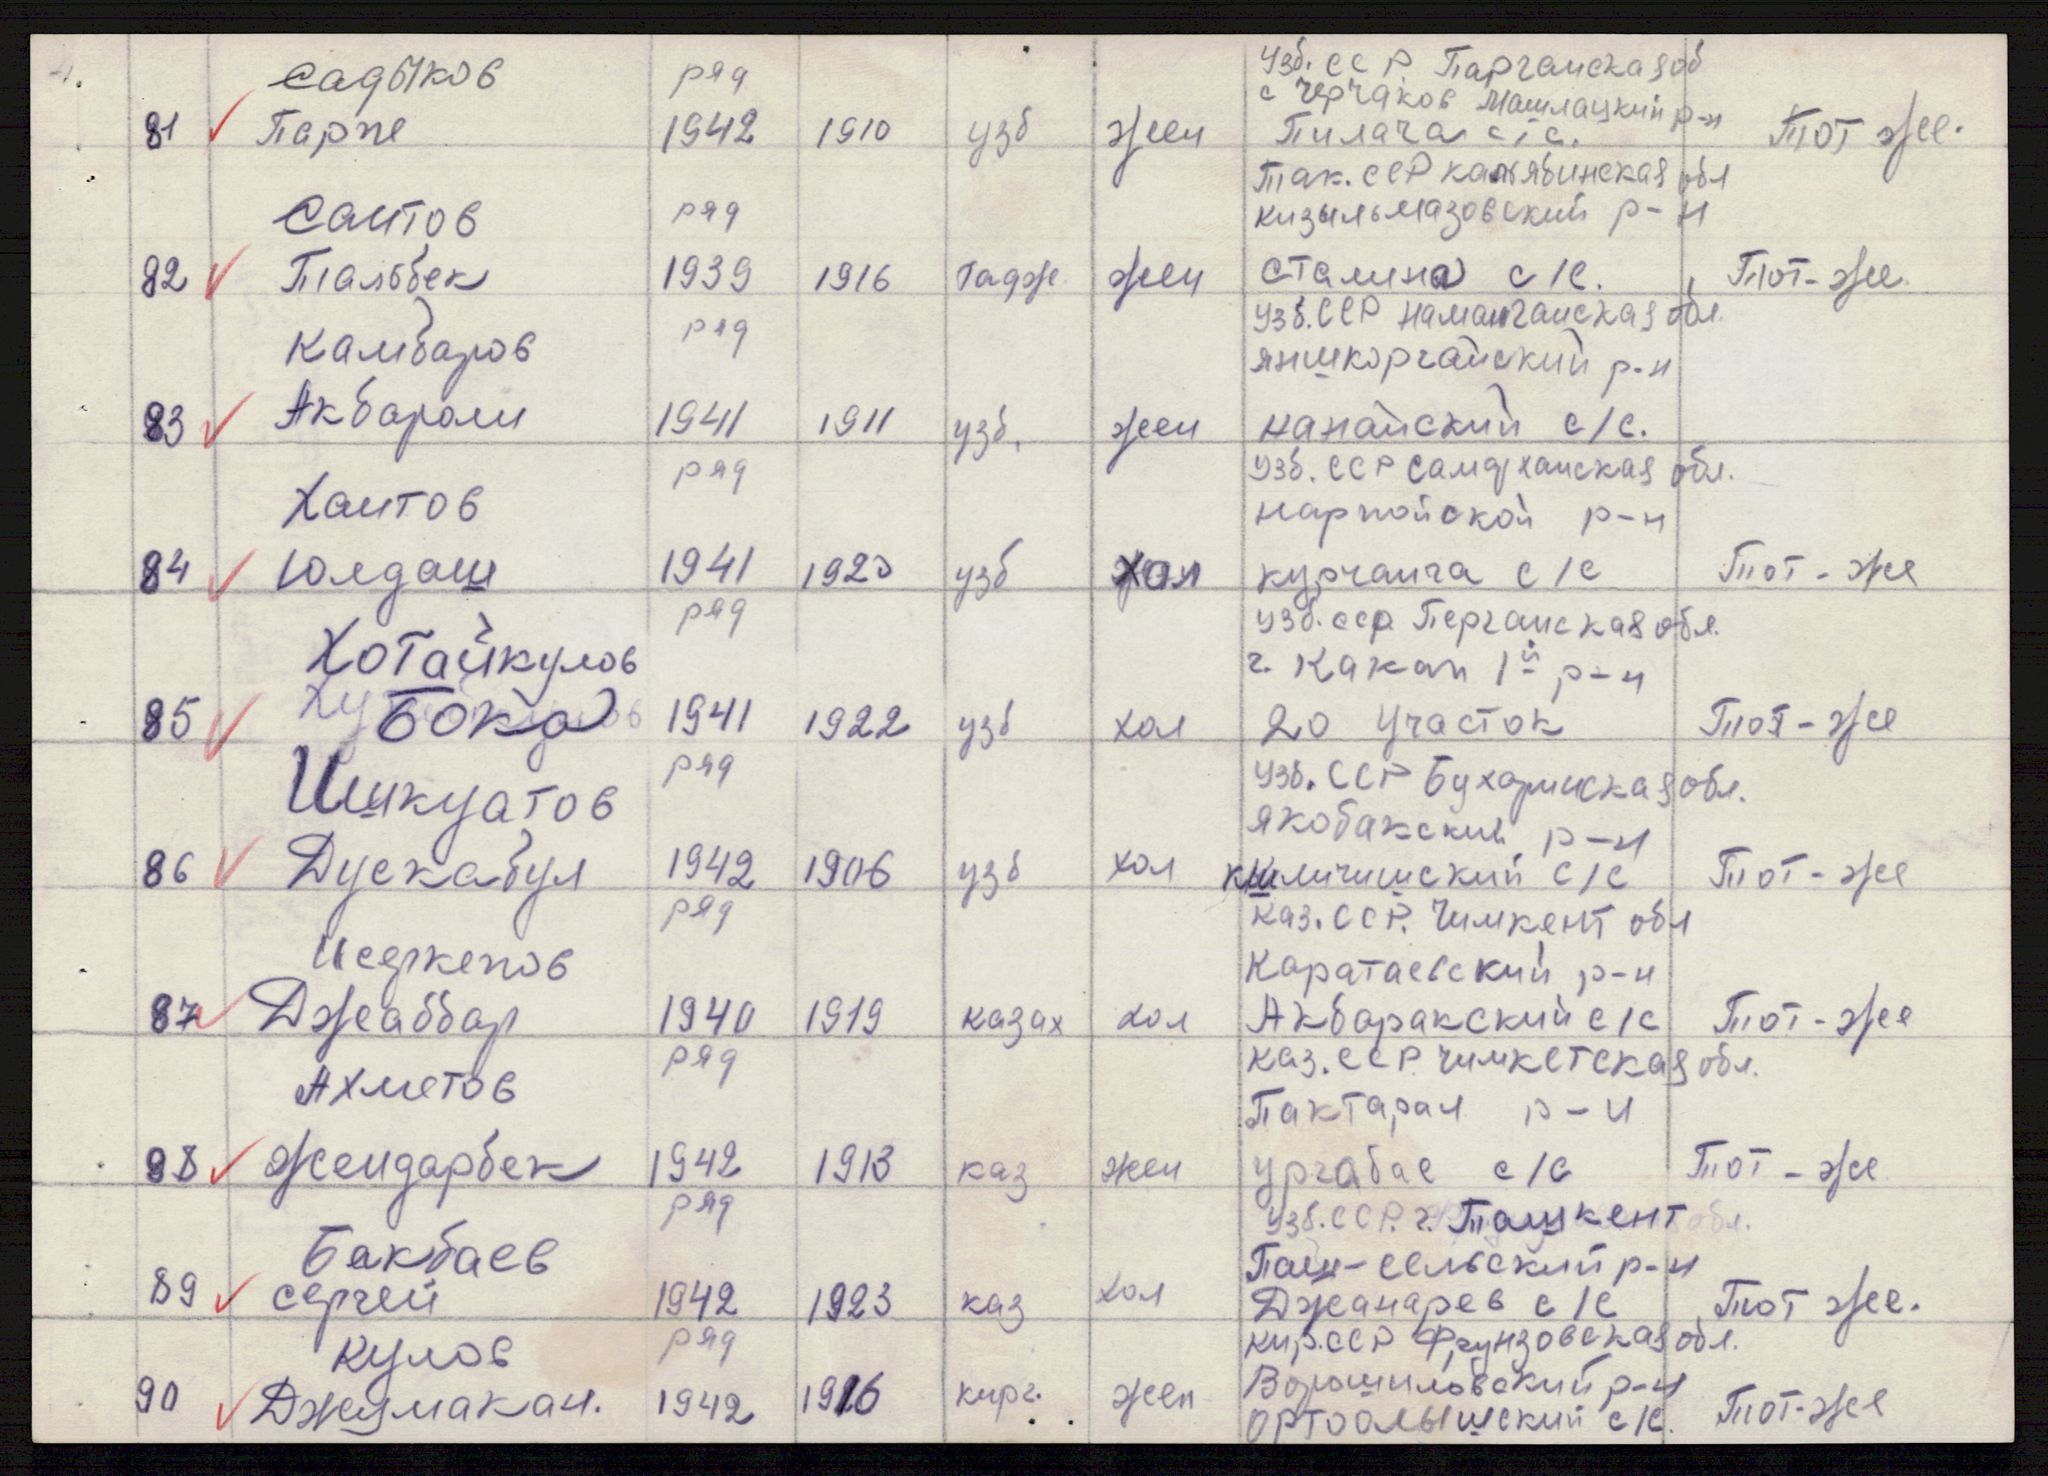 садыков ряд Узб. ССР. Паргамская об
с Черчаков Машлацкий р-н
81 Парпе 1942 1910 узб жен Пилача с/с. Тот же.
Саитов ряд Так. ССР
кизыльмазовский р-н
82 Тальбек 1939 1916 тадж. жен сталина с/с. Тот-же.
Камбаров ряд Узб. ССР Наманганская обл.
яншкорганский р-н
83 Акбароли 1941 1911 узб. жен нанайский с/с.
Хаитов ряд Узб. ССР обл.
нарпойской р-н
84 Юлдаш 1941 1920 узб хол курганга с/с Тот-же
Хотайкулов ряд Узб. сср Перганская обл.
г. Какан 1й р-н
85 Бока 1941 1922 узб хол 20 участок Тот-же
Ишкуатов ряд Узб. ССР Бухаринская обл.
якобакский р-н
86 Дускабул 1942 1906 узб хол с/с Тот-же
Исеркепов ряд Каз. ССР. Чимкент обл
Каратаевский р-н
87 Джаббар 1940 1919 казах хол Акбаракский с/с Тот-же
Ахметов ряд Каз. ССР. чимкетская обл.
Пактарал р-н
88 Жендарбек 1942 1913 каз жен ургабае с/с Тот-же
Бакбаев ряд Узб. ССР. г. Ташкент обл.
Таш-сельский р-н
89 сергей 1942 1923 каз хол Джанарев с/с Тот же.
кулов ряд кир. ССР Фрунзовская обл.
Ворошиловский р-н
90 Джумакан. 1942 1916 кирг. жен ортоалышский с/с. Тот-же